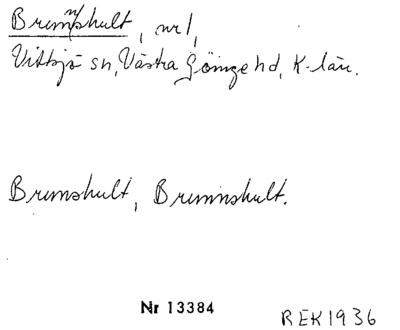 Brumshult, nr 1,
Vittsjö sn, Västra Göinge hd, K-län.
Brumshult, Brunnshult.
Nr 13384
REK 1936